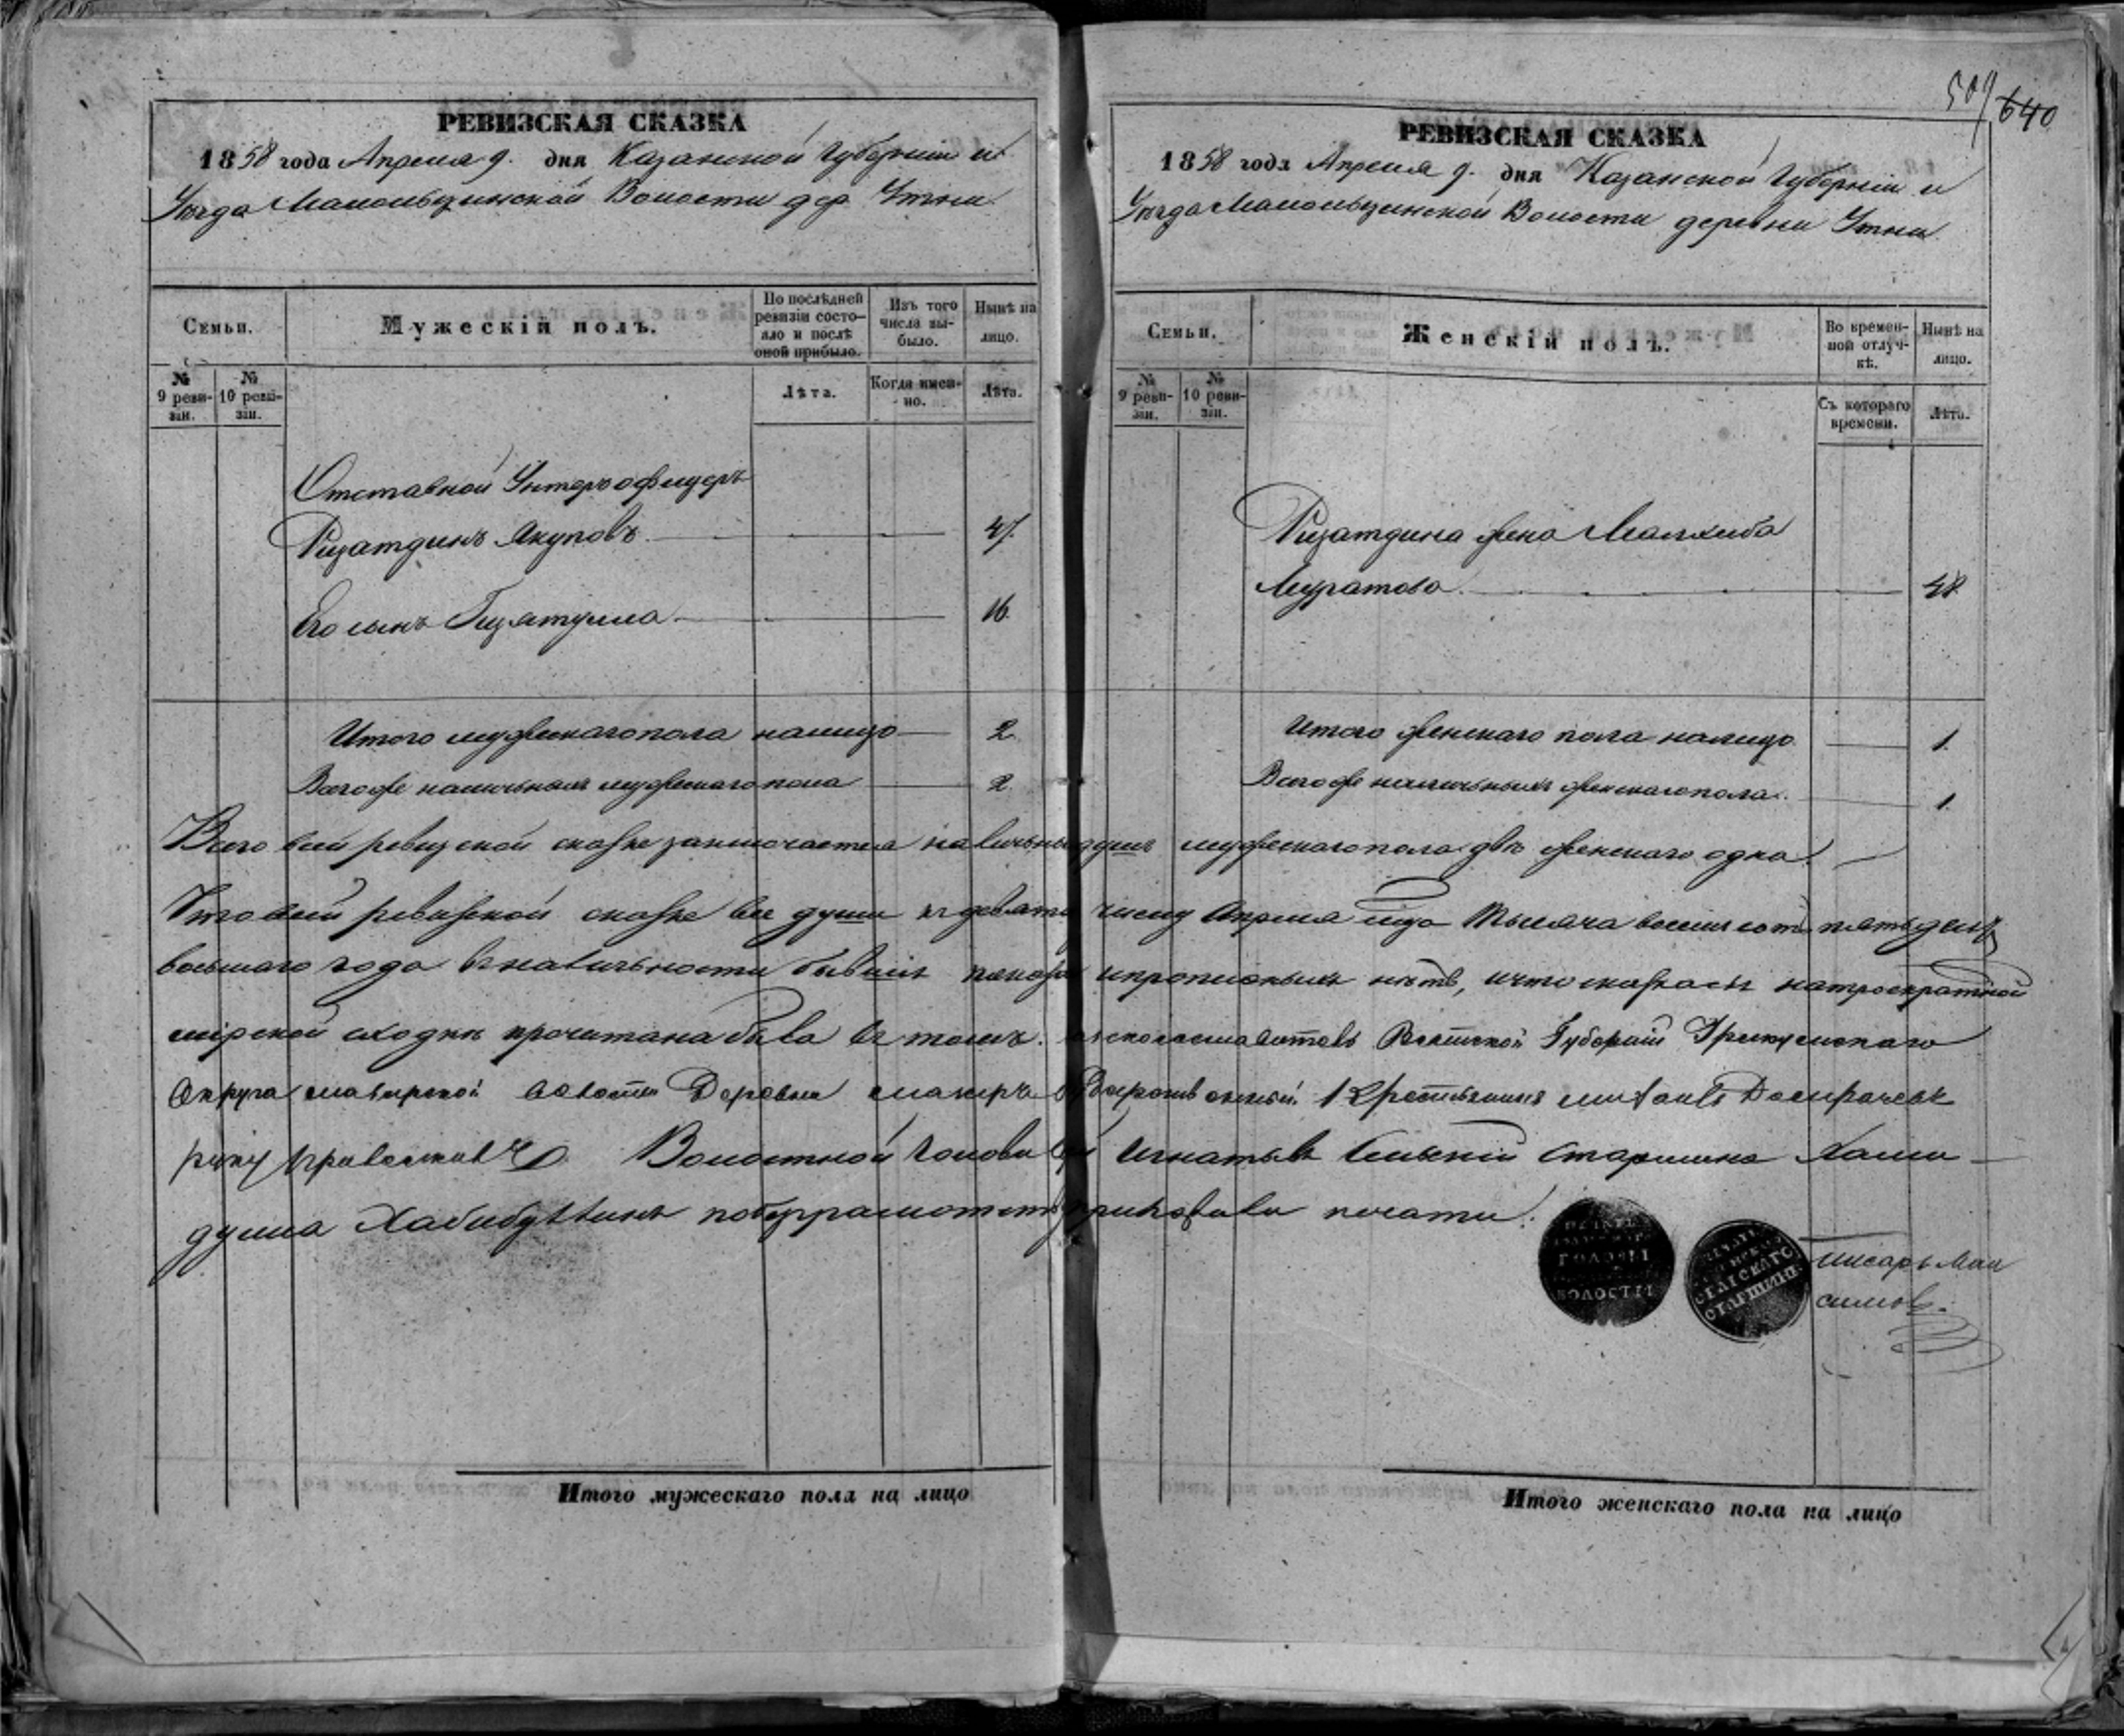 509 640
РЕВИЗСКАЯ СКАЗКА
1858 года Апреля 9. дня Казанской Губерніи и
Уѣзда Мамонынской Волости дер. Утни
Семьи.
Мужескій полъ.
По послѣдней ревизіи состояло и послѣ оной прибыло.
Изъ того числа выбыло.
Нынѣ на лицо.
№ 9 ревизіи.
№ 10 ревизіи.
Лѣта.
Когда именно.
Лѣта.
Отставной Унтеръ офицеръ
Ризатдинъ Якуповъ. 47.
Его сынъ Гизятулла 16.
Итого мужескаго пола налицо 2
Всего же наличныхъ мужескаго пола 2
РЕВИЗСКАЯ СКАЗКА
1858 года Апреля 9. дня Казанской Губерніи и
Уѣзда Волости деревни Утни
Семьи.
Женскій полъ.
Во временной отлучкѣ.
Нынѣ на лицо.
№ 9 ревизіи.
№ 10 ревизіи.
Съ котораго времени.
Лѣта.
Ризатдина жена
Муратова. 48.
Итого женскаго пола налицо 1.
Всего же наличныхъ женскаго пола. 1.
Всего въ сей ревизской сказке заключается наличныхъ душъ мужескаго пола двѣ женскаго одна.
Что въ сей ревизской сказке все души къ девятому числу Апреля Тысяча восемь сотъ пятьдесятъ
восьмаго года въ наличности бывшія показаны и прописныхъ нѣтъ, и что сказка сія на троекратной
мірской сходкѣ прочитана была въ томъ. Вятской Губерніи
Округа волости Деревни
руку приложилъ Волостной Голова Игнатьевъ Сельскій Старшина Хами
дулла Хабибуллинъ по безграмотству приложили печати.
ГОЛОВЫ
ВОЛОСТИ
СЕЛЬСКАГО
СТАРШИНЫ
Писарь Мак
симовъ.
Итого мужескаго пола на лицо
Итого женскаго пола на лицо